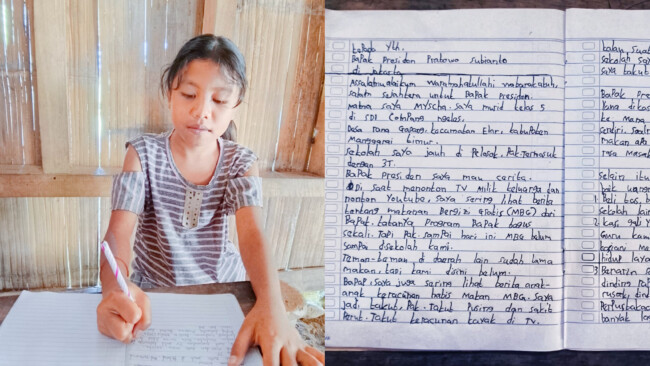 kepada Yth.
Bapak Presiden Prabowo Subianto
di Jakarta
Assalamualaikum warahmatullahi wabarakatuh,
salam sejahtera untuk Bapak Presiden.
Nama saya MYSCHA. saya murid kelas 5
di SDI
Desa Rana Gapang, kecamatan Elar, kabupaten
Manggarai Timur.
sekolah saya jauh di Pelosok, Pak. Termasuk
dengan 3T.
Bapak Presiden saya mau carita.
Di saat manonton TV Milik keluarga dan
nonton Youtube, saya sering lihat berita
tentang makanan Bergizi Gratis (MBG) dari
Bapak. katanya program Bapak bagus
sekali. Tapi Pak, sampai hari ini MBG belum
sampai disekolah kami.
Teman-teman di daerah lain sudah lama
makan. tapi kami disini belum.
Bapak, saya juga sering lihat berita anak-
anak keracunan habis makan MBG. saya
jadi takut, Pak. Takut pusing dan sakit
Perut. Takut keracunan kayak di TV.
sekolah
saya takut
Bapak Pre
yang dika
ke mana
sendiri.
makan apa
rasa masa
selain itu
1. Beli
sekolah lain
2.
Guru kam
hidup laya
3.
dinding
rusak, dind
banyak